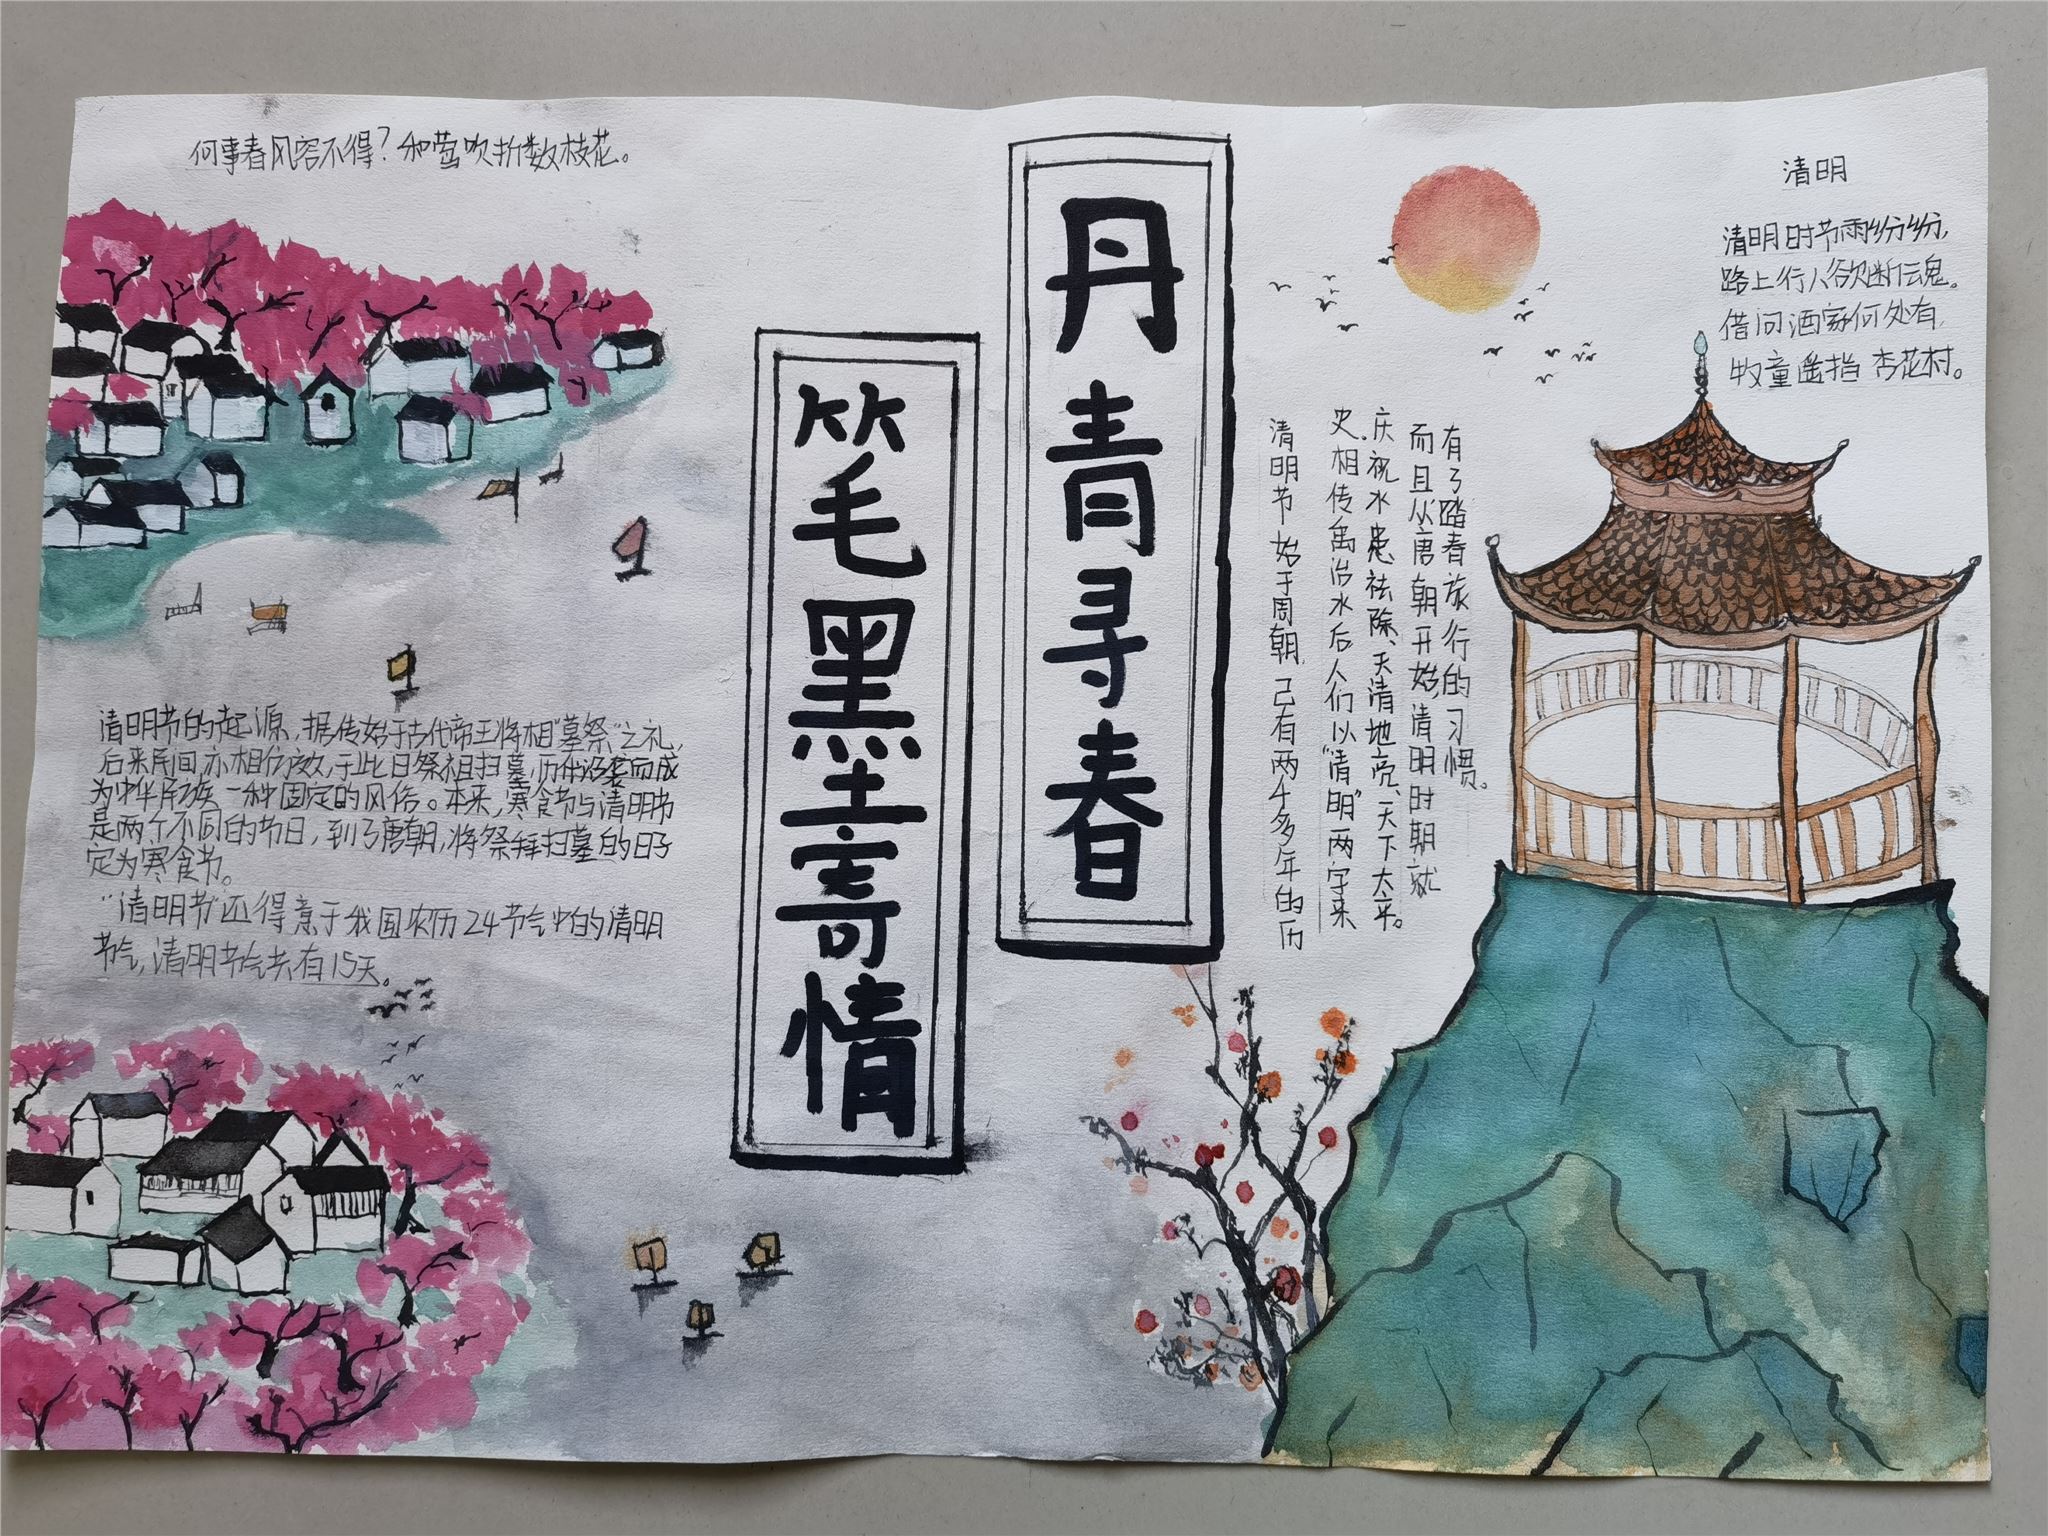 何事春风容不得？和莺吹折数枝花。
丹青寻春
笔墨寄情
清明
清明时节雨纷纷，
路上行人欲断魂。
借问酒家何处有，
牧童遥指杏花村。
清明节始于周朝，已有两千多年的历
史，相传禹治水后人们以“清明”两字来
庆祝水患祛除、天清地亮、天下太平。
而且从唐朝开始，清明时期就
有了踏春旅行的习惯。
清明节的起源，据传始于古代帝王将相“墓祭”之礼，
后来民间亦相仿效，于此日祭祖扫墓，历代沿袭而成
为中华民族一种固定的风俗。本来，寒食节与清明节
是两个不同的节日，到了唐朝，将祭拜扫墓的日子
定为寒食节。
“清明节”还得意于我国农历24节气中的清明
节气，清明节气共有15天。